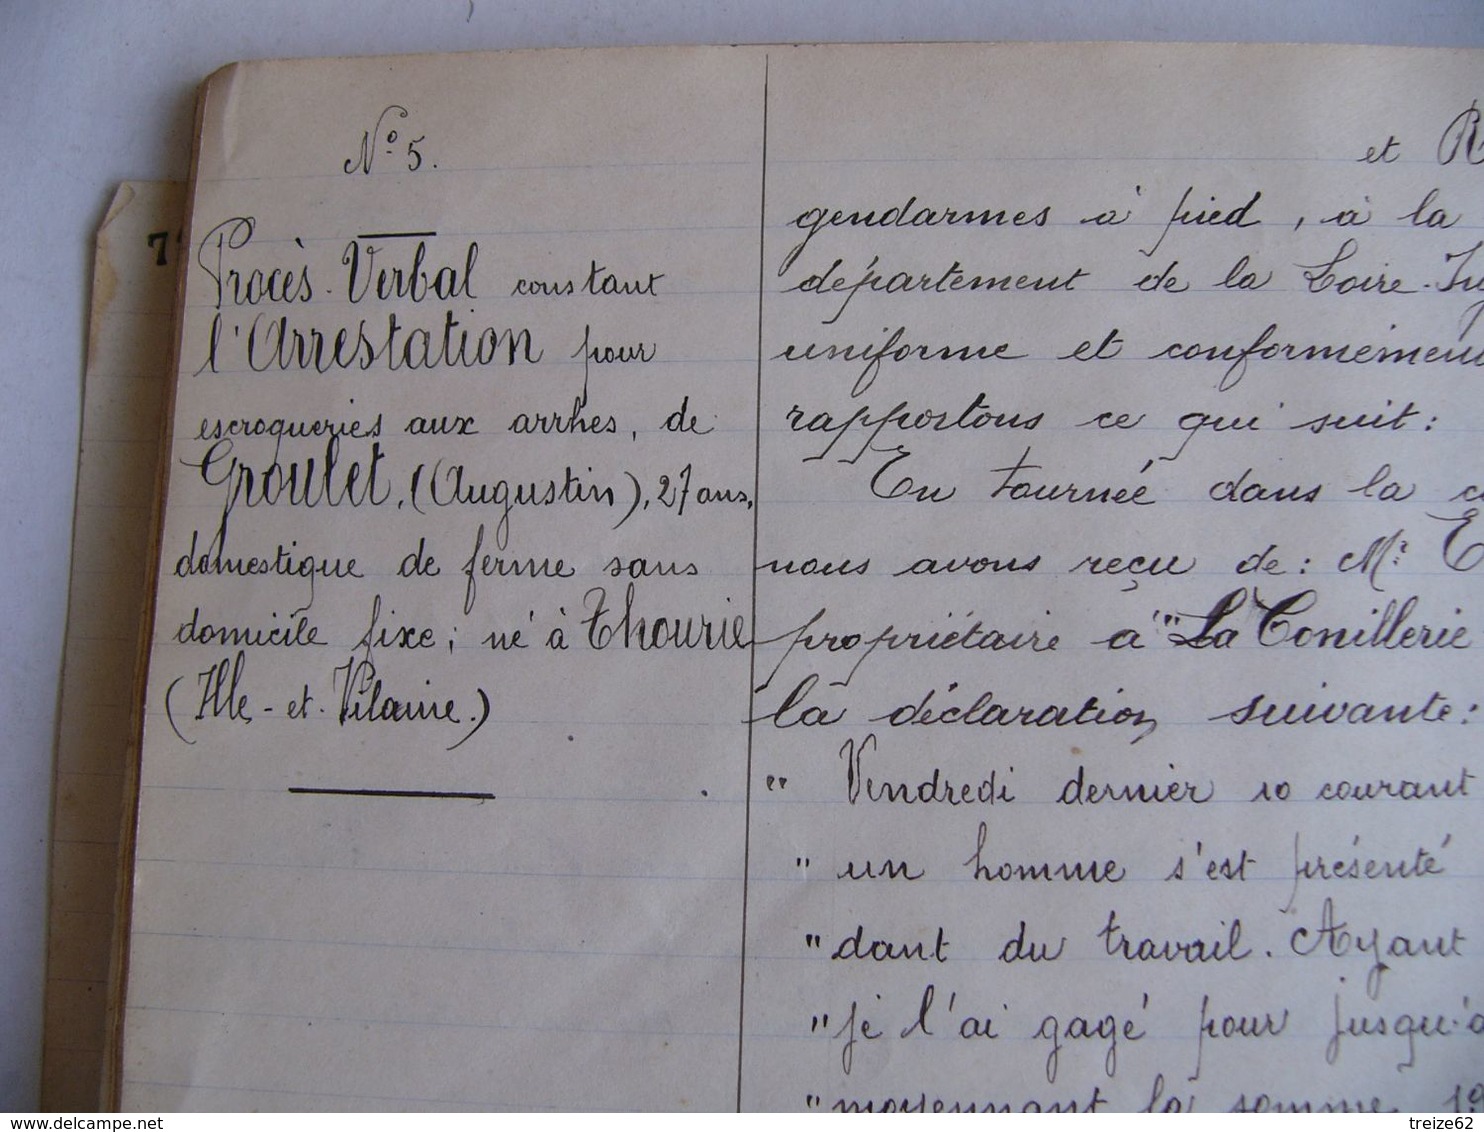 N° 5.
Procès-Verbal constant
l'Arrestation pour
escroqueries aux arrhes, de
Groulet, (Augustin), 27 ans,
domestique de ferme sans
domicile fixe; né à Thourie
(Ille-et-Vilaine.)
7
et R
gendarmes à pied, à la
département de la Loire-Inf
uniforme et conformémen
rapportons ce qui suit:
En tournée dans la c
nous avons reçu de: Mr. E
propriétaire à "La Conillerie
la déclaration suivante:
" Vendredi dernier 10 courant
" un homme s'est présenté
" dant du travail. Ayant
" je l'ai gagé pour jusqu'à
" moyennant la somme 19
www.delcampe.net
treize62